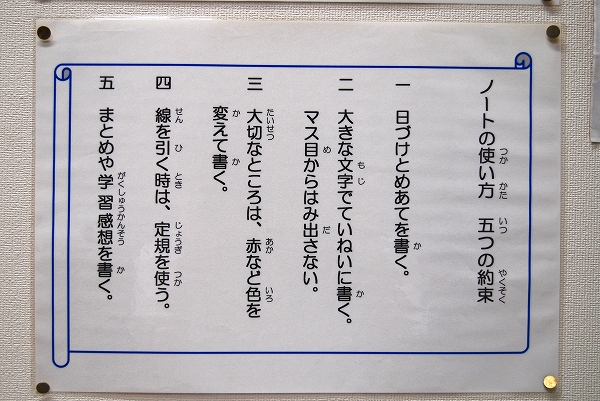 ノートの使い方 五つの約束
一 日づけとめあてを書く。
二 大きな文字でていねいに書く。
マス目からはみ出さない。
三 大切なところは、赤など色を
変えて書く。
四 線を引く時は、定規を使う。
五 まとめや学習感想を書く。